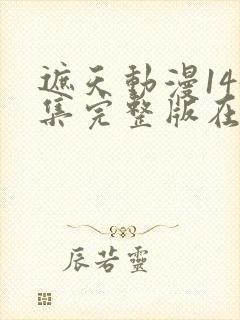 遮天動漫14
集完整版在
辰若靈